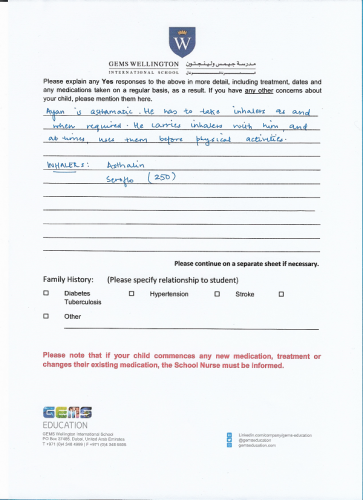 W
GEMS WELLINGTON
INTERNATIONAL SCHOOL
مدرسة جيمس ولينجتون
Please explain any Yes responses to the above in more detail, including treatment, dates and
any medications taken on a regular basis, as a result. If you have any other concerns about
your child, please mention them here.
Ayan is asthamatic. He has to take inhalers as and
when required. He carries inhalers with him, and
at times, uses them before physical activities.
INHALERS: Asthalin
Seroflo (250)
Please continue on a separate sheet if necessary.
Family History: (Please specify relationship to student)
☐ Diabetes ☐ Hypertension ☐ Stroke ☐
Tuberculosis
☐ Other
Please note that if your child commences any new medication, treatment or
changes their existing medication, the School Nurse must be informed.
GEMS
EDUCATION
GEMS Wellington International School
PO Box 37486, Dubai, United Arab Emirates
linkedin.com/company/gems-education
@gemseducation
gemseducation.com